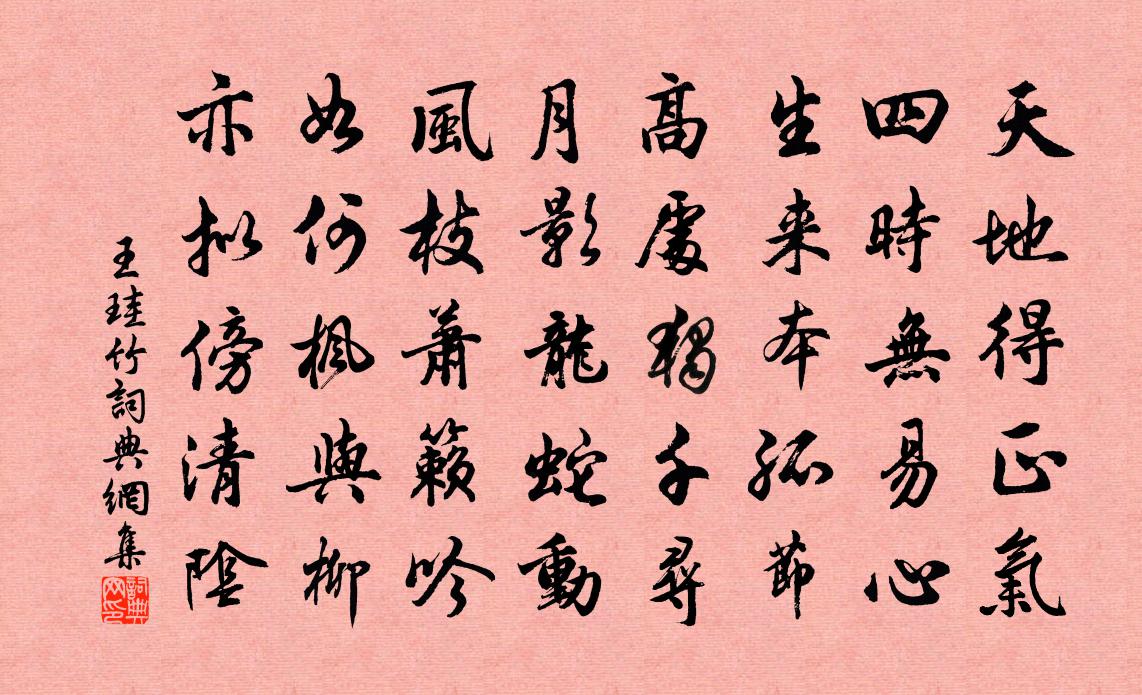 天地得正氣
四時無易心
生来本孤節
高處獨千尋
月影龍蛇動
風枝蕭籟吟
如何楓與柳
亦擬傍清陰
王珪竹詞典網集
詞典網印